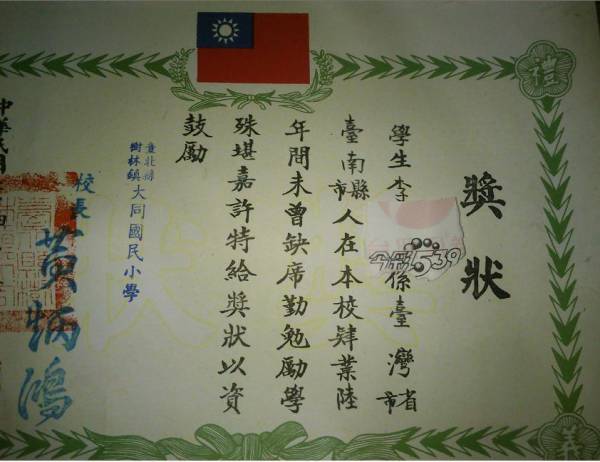 禮
獎狀
學生李 係臺灣省市
今彩539
臺南縣市人在本校肄業陸
年間未曾缺席勤勉勵學
殊堪嘉許特給獎狀以資
鼓勵
臺北縣
樹林鎮大同國民小學
校長 黃炳鴻
中華民國
義